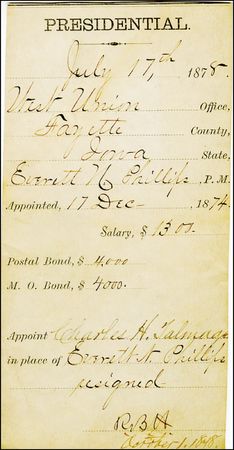 PRESIDENTIAL.
July 17, th 1878.
West Union Office,
Fayette County,
Iowa, State,
Everett N Phillips, P. M.
Appointed, 17 Dec 1874
Salary, $ 1300.
Postal Bond, $ 4,000
M. O. Bond, $ 4000.
Appoint Charles H. Talmage
in place of Everett N. Phillips
resigned
R.B.H
October 1. 1878.